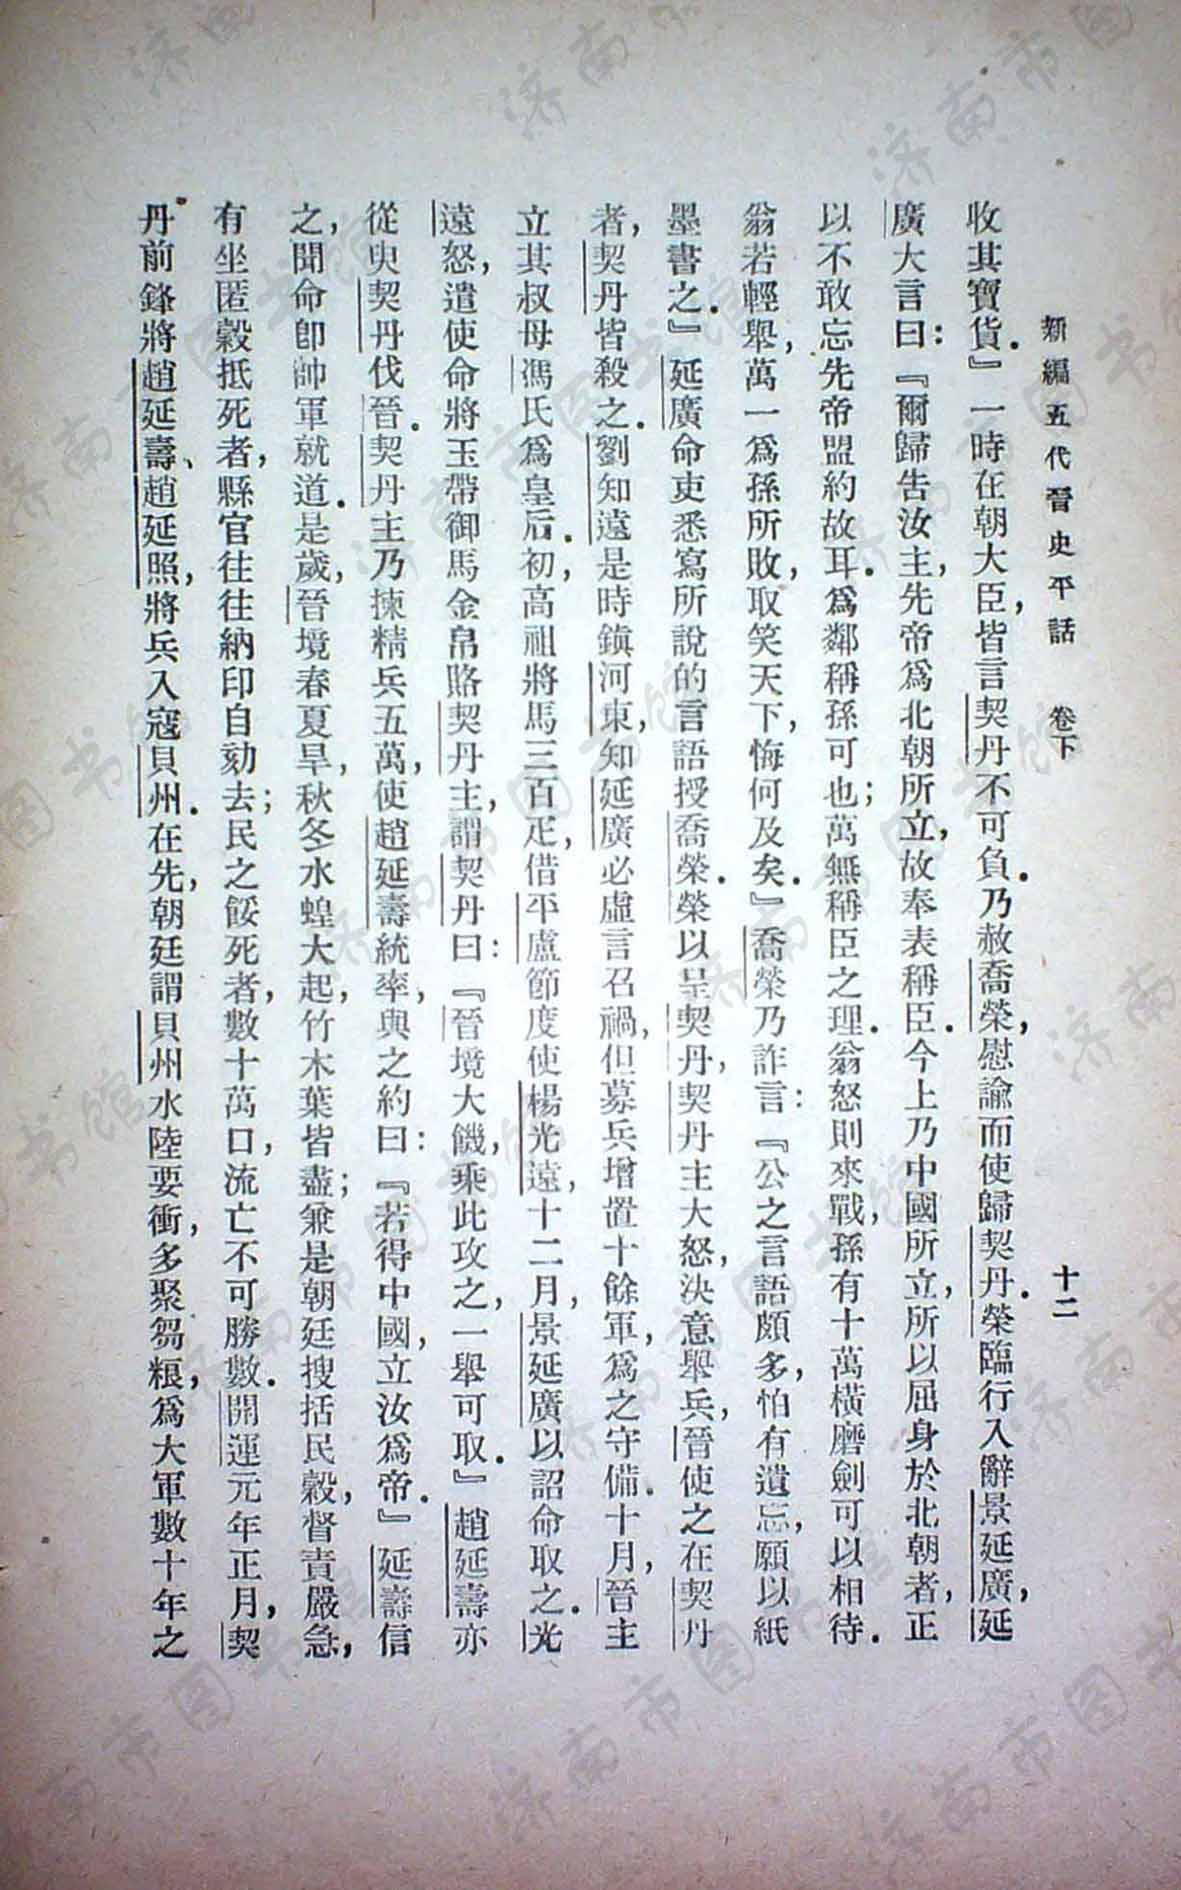 新編五代晉史平話　卷下　十二
收其寶貨．』一時在朝大臣，皆言契丹不可負．乃赦喬榮，慰諭而使歸契丹．榮臨行入辭景延廣，延
廣大言曰：『爾歸告汝主，先帝爲北朝所立，故奉表稱臣．今上乃中國所立，所以屈身於北朝者，正
以不敢忘先帝盟約故耳．爲鄰稱孫可也；萬無稱臣之理．翁怒則來戰，孫有十萬橫磨劍可以相待．
翁若輕舉，萬一爲孫所敗，取笑天下，悔何及矣．』喬榮乃詐言：『公之言語頗多，怕有遺忘，願以紙
墨書之．』延廣命吏悉寫所說的言語授喬榮．榮以呈契丹，契丹主大怒，決意舉兵，晉使之在契丹
者，契丹皆殺之．劉知遠是時鎮河東，知延廣必虛言召禍，但募兵增置十餘軍，爲之守備．十月，晉主
立其叔母馮氏爲皇后．初，高祖將馬三百疋，借平盧節度使楊光遠，十二月，景延廣以詔命取之．光
遠怒，遣使命將玉帶御馬金帛賂契丹主，謂契丹曰：『晉境大饑，乘此攻之，一舉可取．』趙延壽亦
從臾契丹伐晉．契丹主乃揀精兵五萬，使趙延壽統率，與之約曰：『若得中國，立汝爲帝．』延壽信
之，聞命卽帥軍就道．是歲，晉境春夏旱，秋冬水蝗大起，竹木葉皆盡；兼是朝廷搜括民穀，督責嚴急，
有坐匿穀抵死者，縣官往往納印自劾去；民之餒死者，數十萬口，流亡不可勝數．開運元年正月，契
丹前鋒將趙延壽、趙延照，將兵入寇貝州．在先，朝廷謂貝州水陸要衝，多聚芻糧，爲大軍數十年之
濟南市图书馆